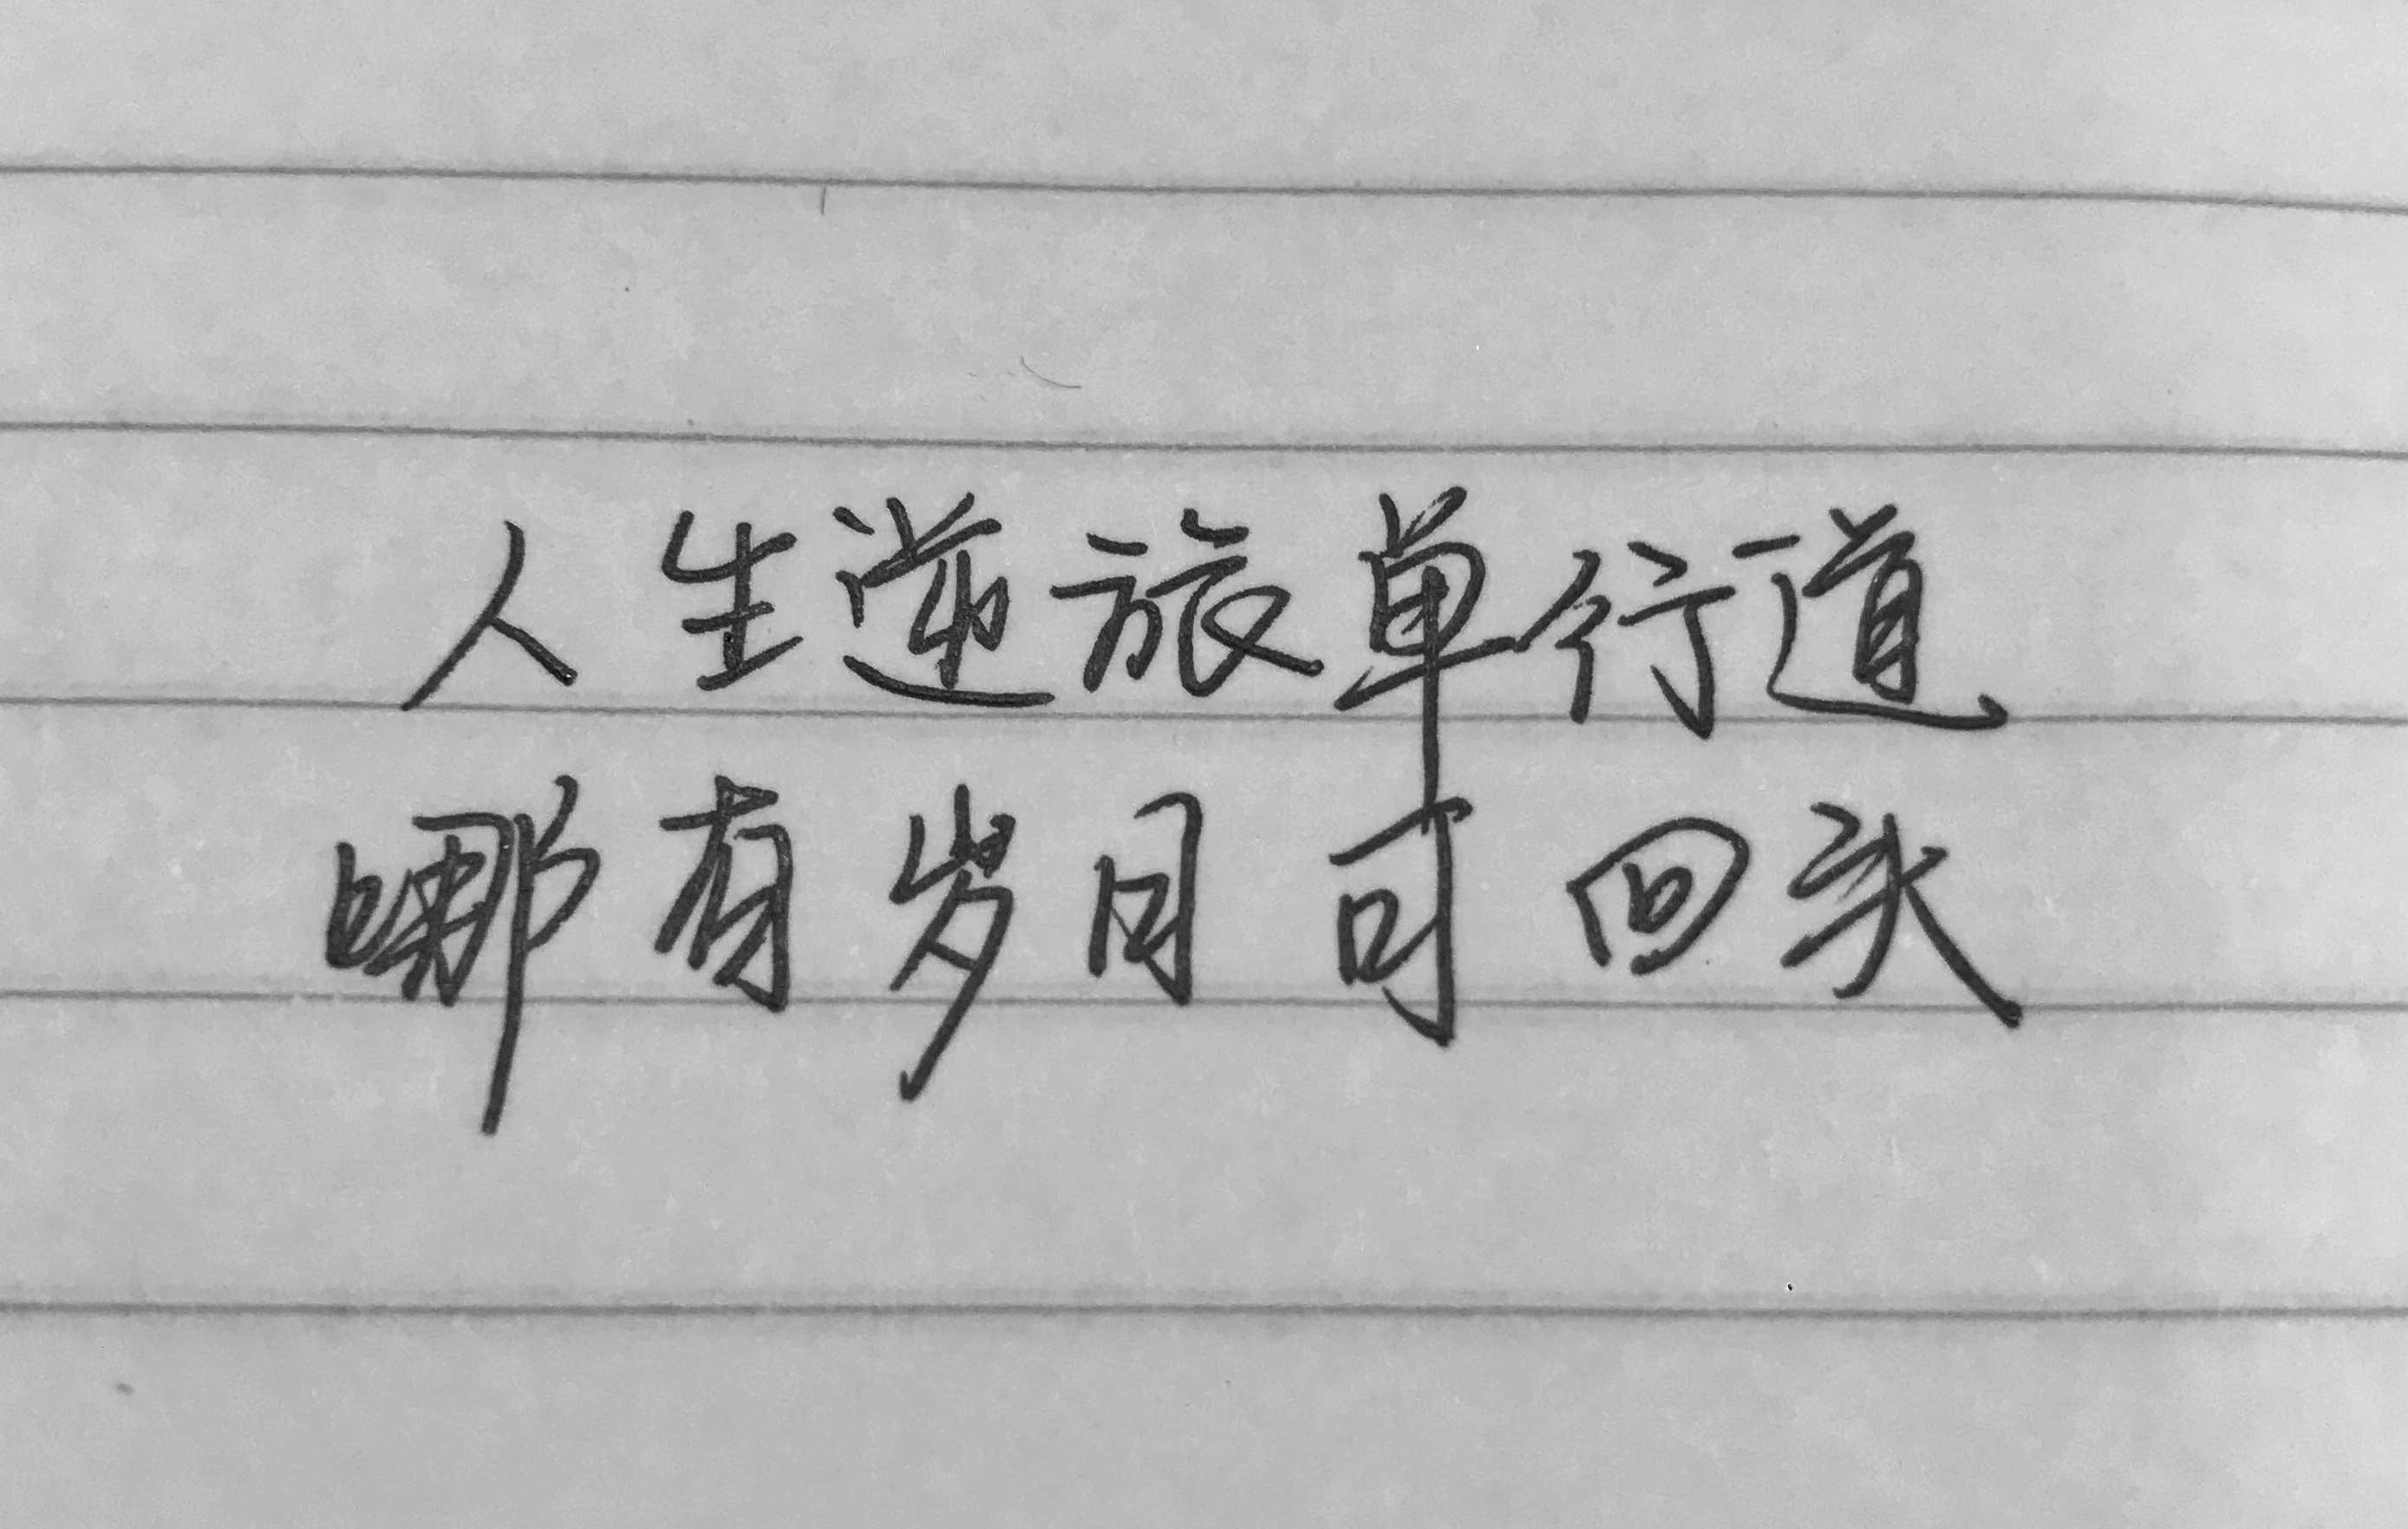 人生逆旅单行道
哪有岁月可回头